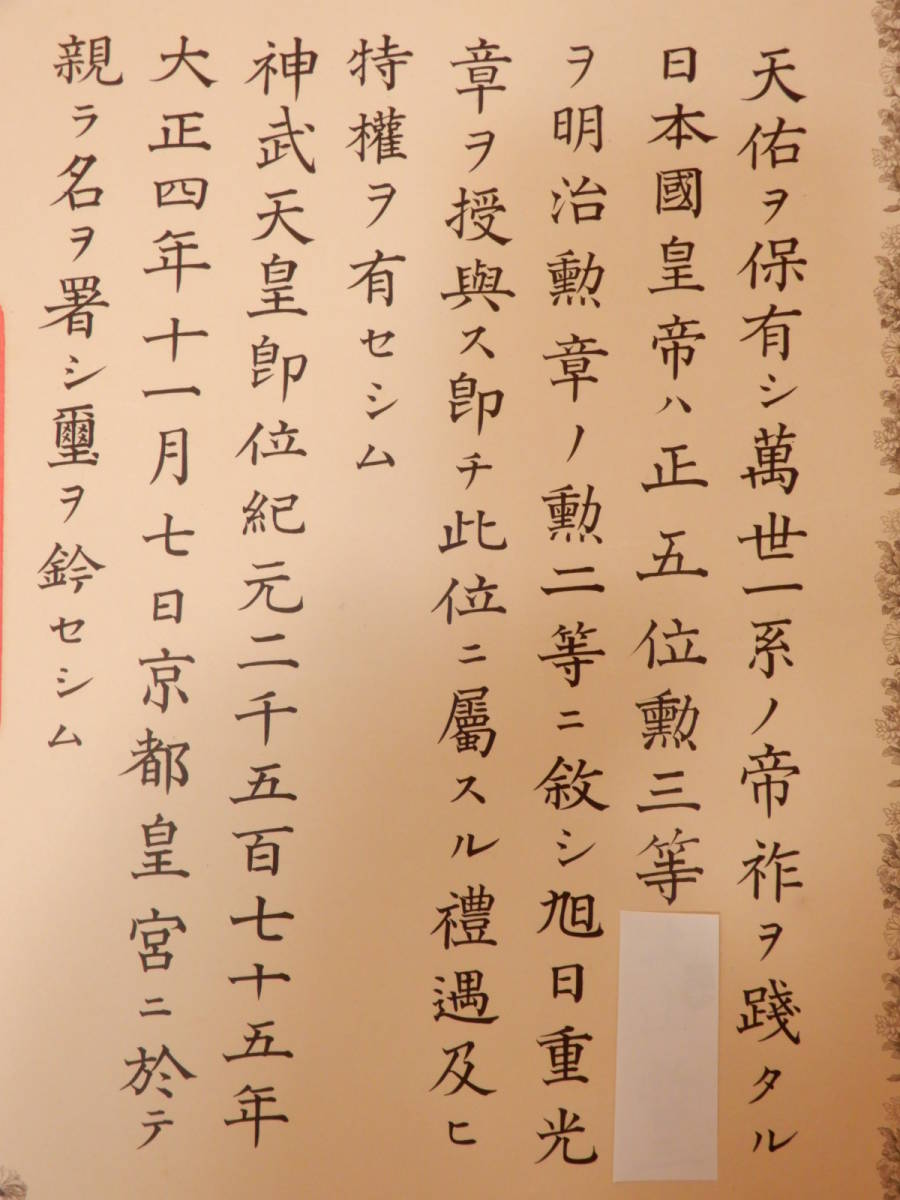 天佑ヲ保有シ萬世一系ノ帝祚ヲ踐タル
日本國皇帝ハ正五位勲三等
ヲ明治勲章ノ勲二等ニ敘シ旭日重光
章ヲ授與ス卽チ此位ニ屬スル禮遇及ヒ
特權ヲ有セシム
神武天皇卽位紀元二千五百七十五年
大正四年十一月七日京都皇宮ニ於テ
親ラ名ヲ署シ璽ヲ鈐セシム